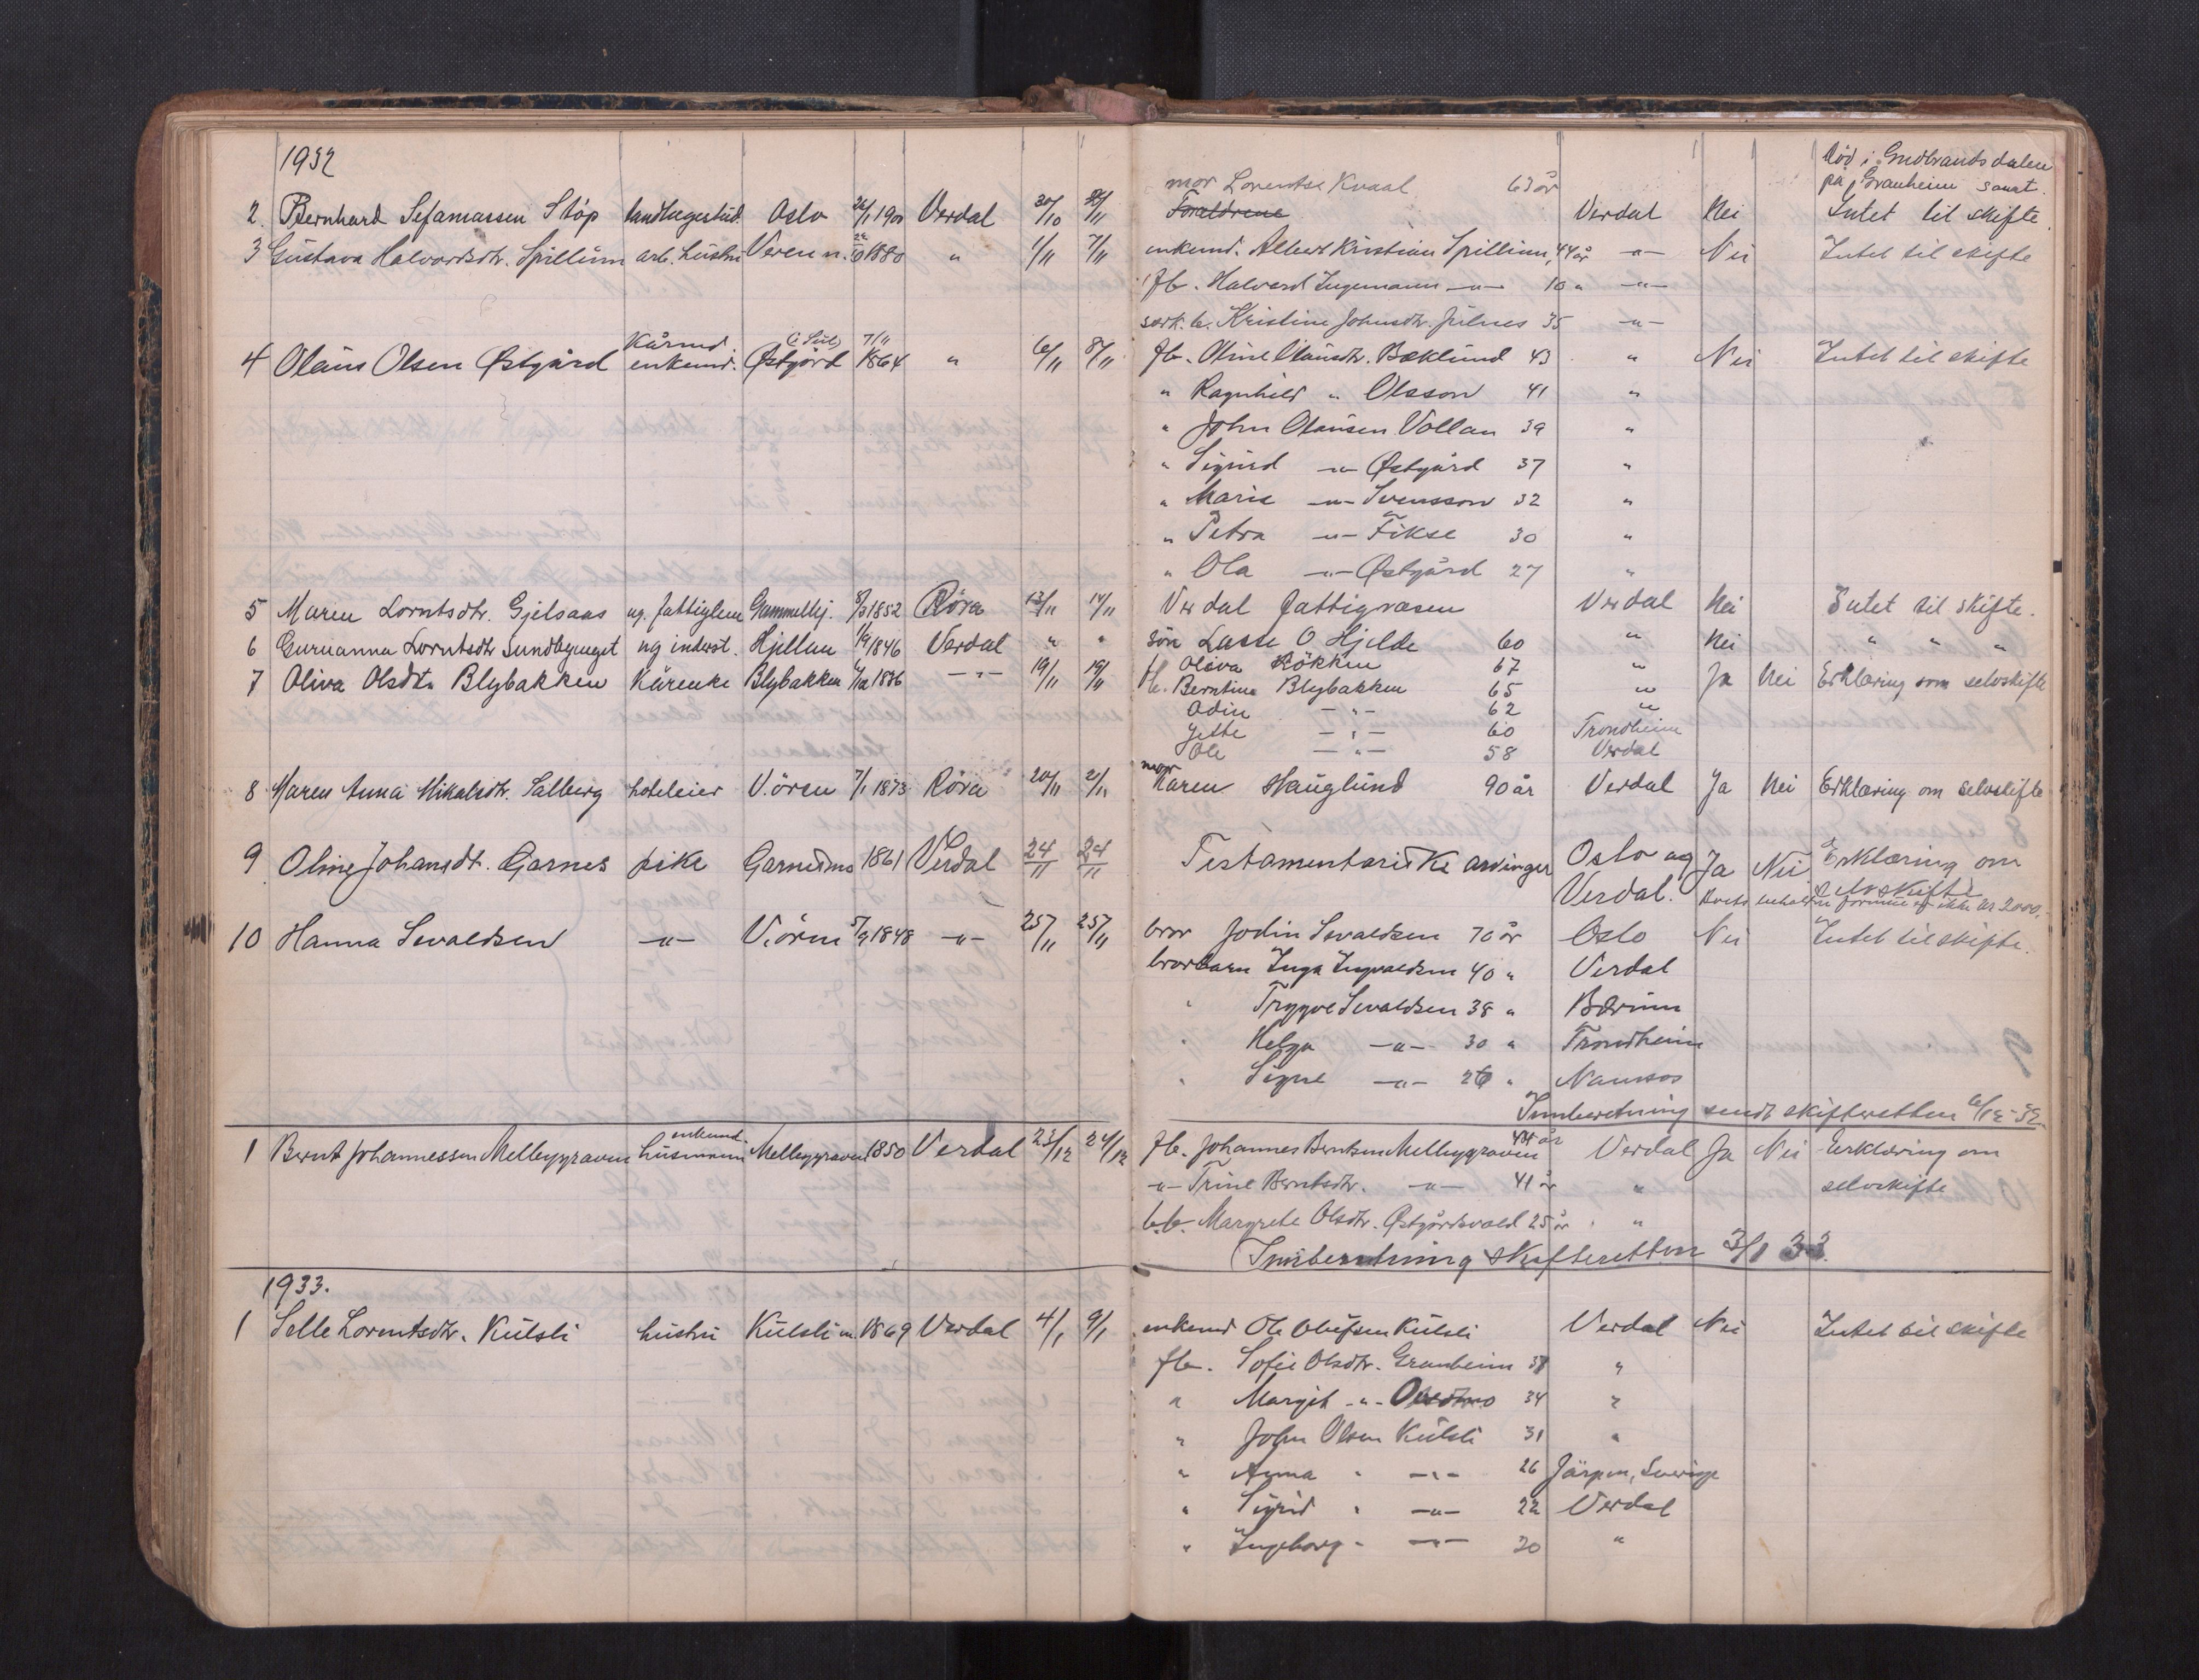 1932
Död i Gudbrandsdalen
på Granheim sanat.
mor Lorentse Kvaal 63 år
2 Bernhard Sefamassen Stöp landbagestud. Oslo 1901 Verdal 30/10 Foreldrene Verdal Nei Intet til skifte.
3 Gustava Halvardsdtr. Spillum arb. hustru Veren n. 1880 " 1/11 7/11 enkemd. Albert Kristian Spillum, 44 år -"- Nei Intet til skifte
fb. Halvard Ingemann -"- 10 " -"-
særk. b. Kristine Johnsdtr. Julnes 35 -"-
4 Olaus Olsen Østgård Kårmd. enkemd. (i Sul) Østgård 7/11 1864 " 6/11 8/11 fb. Oline Olausdtr. Baklund 43 " Nei Intet til skifte
" Ragnhild " Olsson 41 "
" John Olausen Vollan 39 "
" Sigurd -"- Østgård 37 "
" Marie -"- Svensson 32 "
" Petra -"- Fikse 30 "
" Ola -"- Østgård 27 "
5 Maren Lorntsdtr. Gjelsaas ug. fattiglem Gammelhj. 1852 Röra 13/11 14/11 Verdal fattigvæsen Verdal Nei Intet til skifte.
6 Guruanna Lorntsdtr Sundbyeuget ug inderst. Hjellan 1/9 1846 Verdal " " sön Lasse O. Hjelde 60 " Nei " " "
7 Oliva Olsdtr. Blybakken Kårenke Blybakken 1836 -"- 19/11 19/11 fb. Oliva Rökken 67 " Ja Nei Erklæring som selvskifte
fb. Berntine Blybakken 65 "
Odin -"- 62 "
Jette -"- 60 Trondheim
Ole -"- 58 Verdal
8 Maren Anna Mikalsdtr. Salberg hoteleier V.ören 7/1 1873 Röra 20/11 21/11 mor Karen Hauglund 90 år Verdal Ja Nei Erklæring om selvskifte
9 Oline Johansdt. Garnes pike Garnesmo 1861 Verdal 24/11 24/11 Testamentariske arvinger Oslo og Ja Nei Erklæring om
Verdal. Boets beholdne formue ikke kr 2000.- selvskifte
10 Hanna Sevaldsen -"- V.ören 5/9 1848 -"- 25/11 25/11 bror Jodin Sevaldsen 70 år Oslo Nei Intet til skifte.
brorbarn Inga Ingvaldsen 40 " Verdal
" Trygve Sevaldsen 38 " Bærum
" Helga -"- 30 " Trondheim
" Signe -"- 26 " Namsos
Innberetning sendt skifteretten 6/12-32.
1 Bernt Johannessen Melbygraven enkemd. husmann Melbygraven 1850 Verdal 23/12 24/12 fb. Johannes Berntsen Melbygraven år Verdal Ja Nei Erklæring om
-"- Trine Berntsdtr. -"- 41 år " selvskifte
b.b. Margrete Olsdtr. Østgårdsvald 25 år "
Innberetning skifteretten 3/1 33.
1933.
1 Selle Lorentsdtr. Kulsli hustru Kulsli n. 1869 Verdal 4/1 9/1 enkemd Ole Olufsen Kulsli Verdal Nei Intet til skifte
fb. Sofie Olsdtr. Granheim 38 "
" Margit -"- 34 "
" John Olsen Kulsli 31 "
" Anna " -"- 26 Järpen, Sverige
" Sigrid " -"- 22 Verdal
" Ingeborg " -"- 20 "